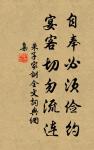 自奉必須儉約
宴客切勿流連
朱子家訓全文詞典網
集